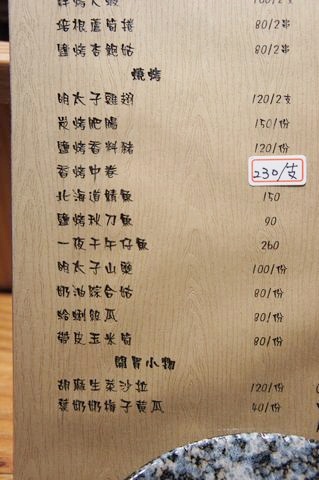 培根蘆筍捲 80/2串
鹽烤杏鮑菇 80/2串
燒烤
明太子雞翅 120/2支
炭烤肥腸 150/份
鹽烤香料豬 120/份
香烤中卷 230/支
北海道鯖魚 150
鹽烤秋刀魚 90
一夜干午仔魚 260
明太子山藥 100/份
奶油綜合菇 80/份
蛤蜊絲瓜 80/份
帶皮玉米筍 80/份
開胃小物
胡麻生菜沙拉 120/份
葉奶奶梅子黃瓜 40/份